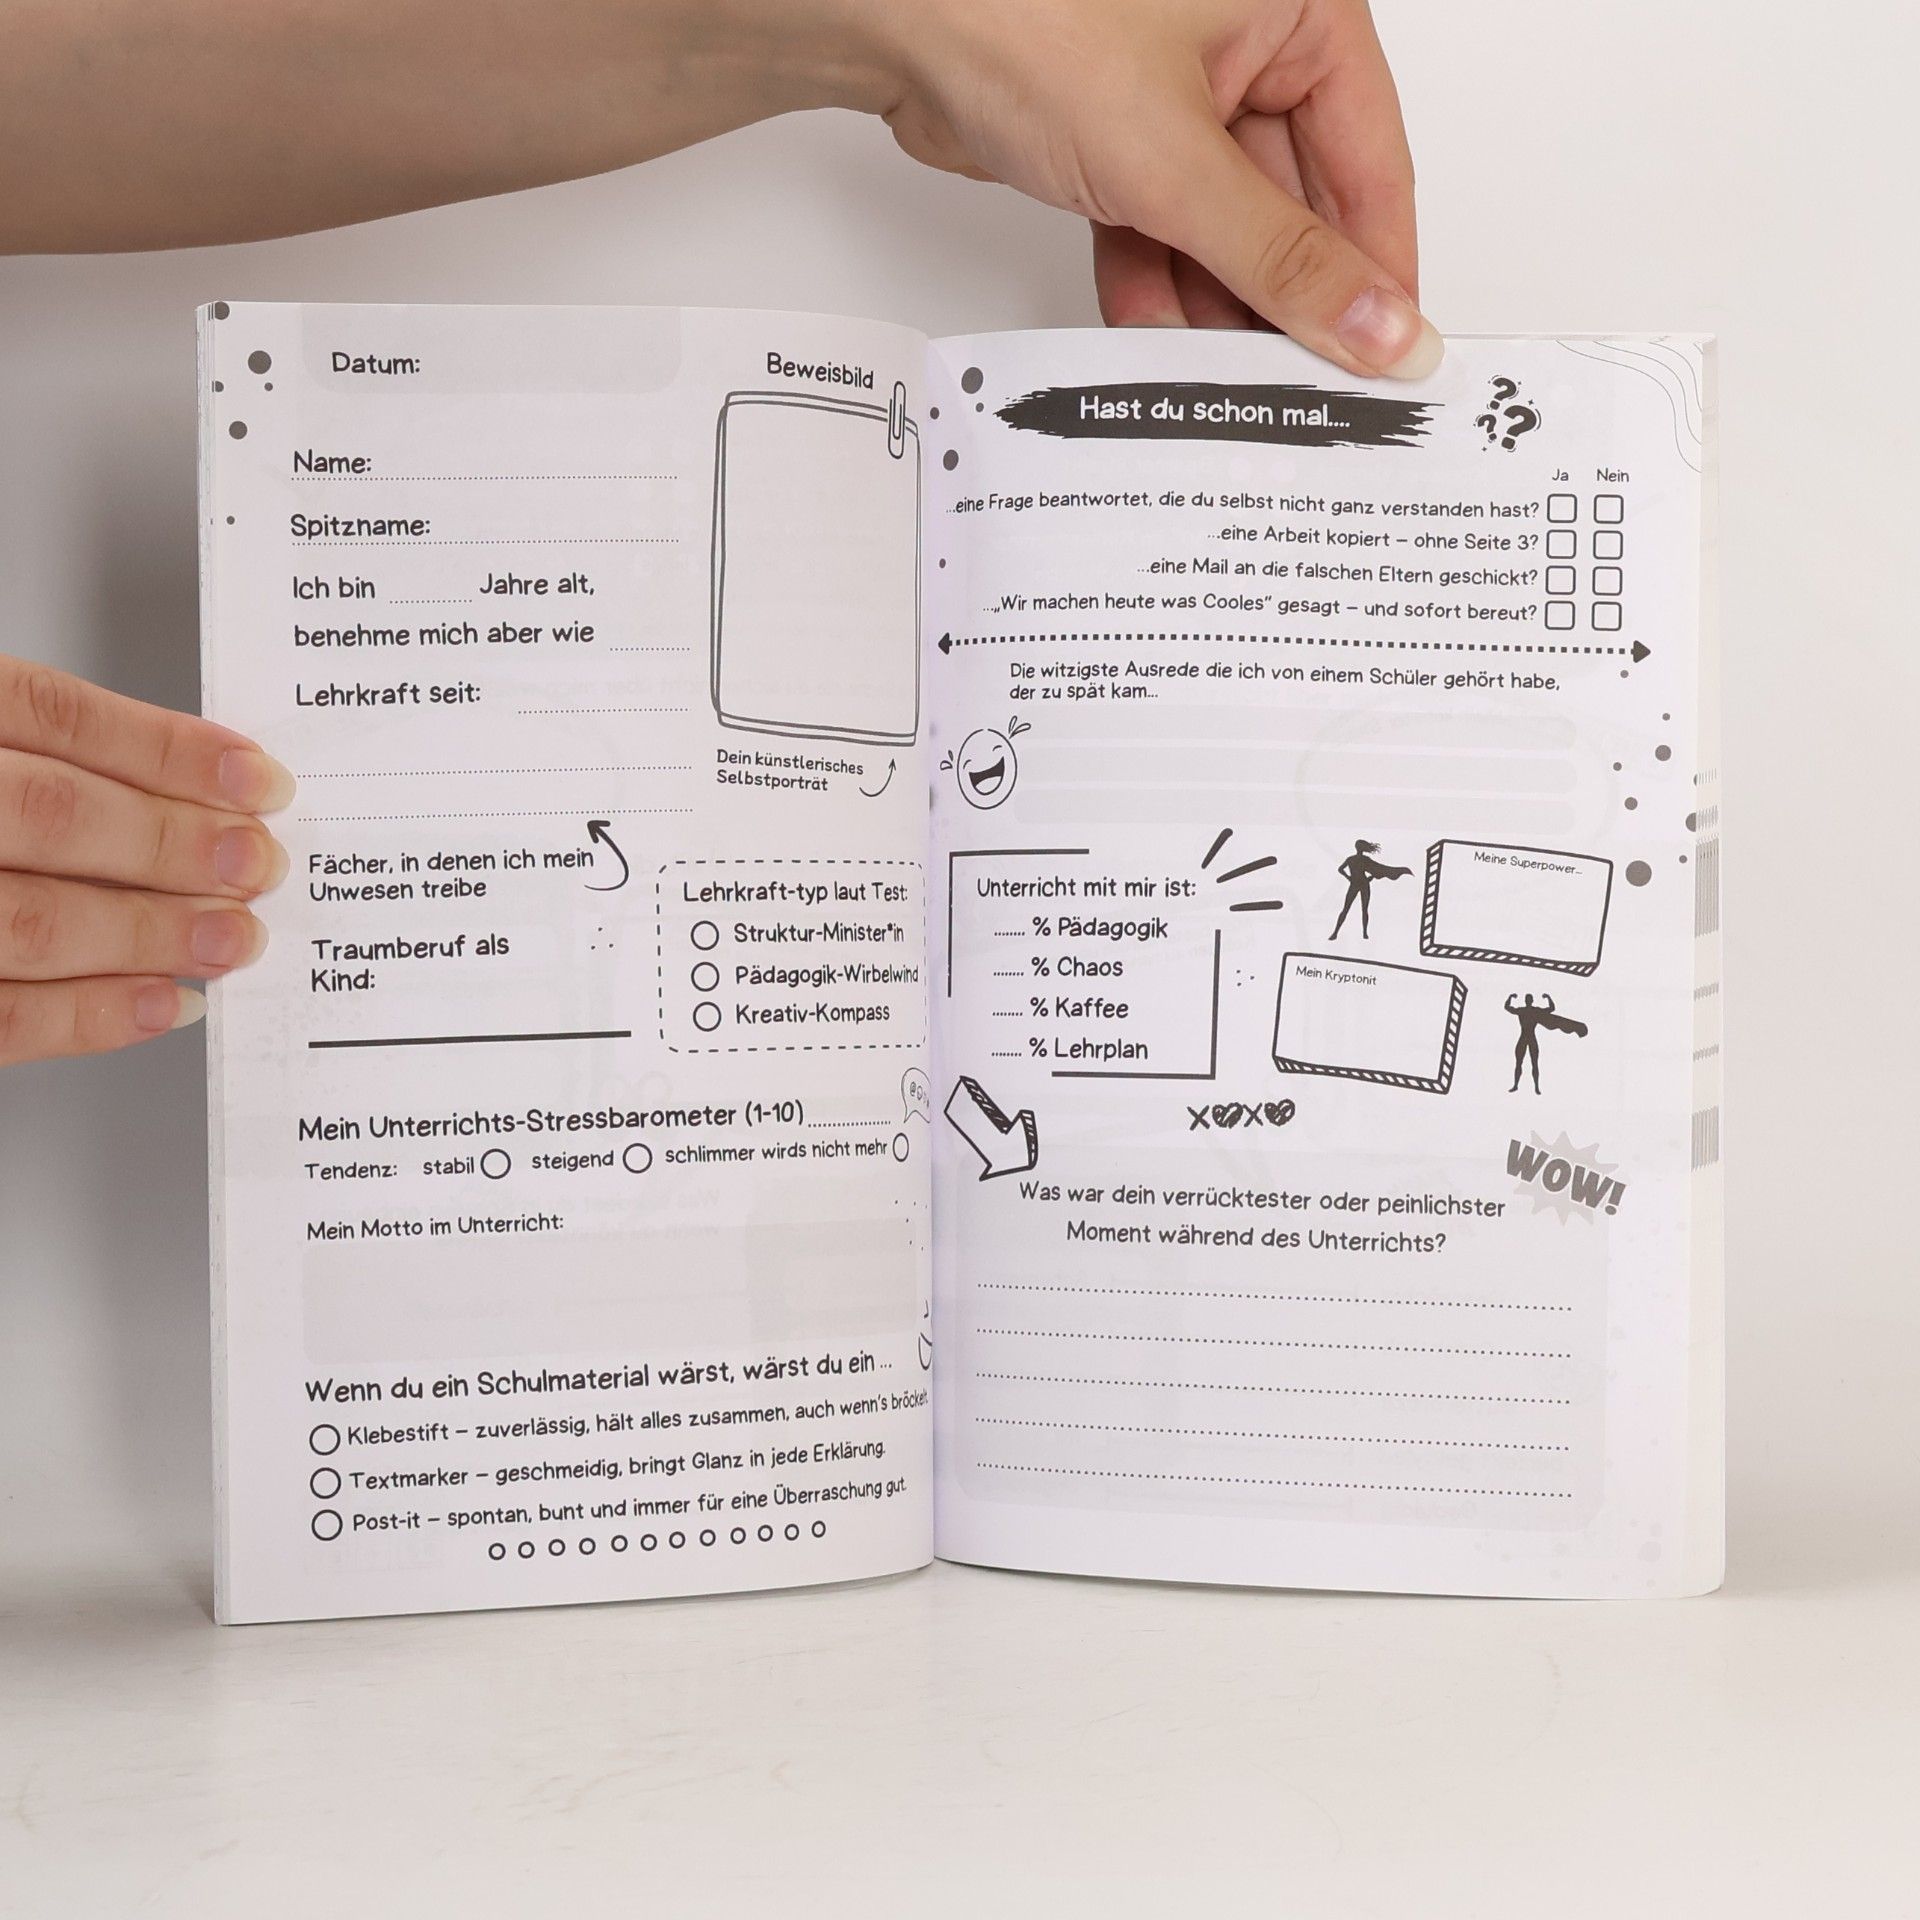 Datum:
Beweisbild
Name:
Spitzname:
Ich bin ........... Jahre alt,
benehme mich aber wie ...........
Lehrkraft seit:
Dein künstlerisches
Selbstporträt
Fächer, in denen ich mein
Unwesen treibe
Traumberuf als
Kind:
Lehrkraft-typ laut Test:
Struktur-Minister*in
Pädagogik-Wirbelwind
Kreativ-Kompass
Mein Unterrichts-Stressbarometer (1-10)................
Tendenz: stabil steigend schlimmer wirds nicht mehr
Mein Motto im Unterricht:
Wenn du ein Schulmaterial wärst, wärst du ein ...
Klebestift – zuverlässig, hält alles zusammen, auch wenn's bröckelt.
Textmarker – geschmeidig, bringt Glanz in jede Erklärung.
Post-it – spontan, bunt und immer für eine Überraschung gut.
Hast du schon mal....
???
Ja Nein
...eine Frage beantwortet, die du selbst nicht ganz verstanden hast?
...eine Arbeit kopiert – ohne Seite 3?
...eine Mail an die falschen Eltern geschickt?
...„Wir machen heute was Cooles“ gesagt – und sofort bereut?
Die witzigste Ausrede die ich von einem Schüler gehört habe,
der zu spät kam...
Unterricht mit mir ist:
........ % Pädagogik
........ % Chaos
........ % Kaffee
........ % Lehrplan
Meine Superpower...
Mein Kryptonit
WOW!
Was war dein verrücktester oder peinlichster
Moment während des Unterrichts?